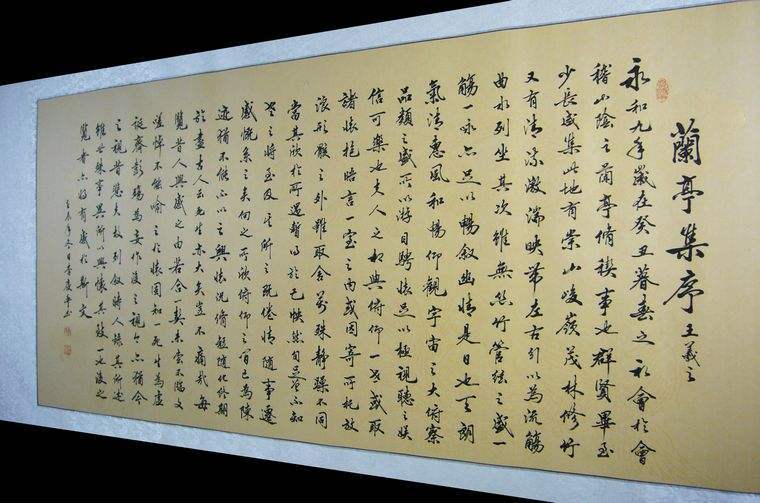 蘭亭集序 王羲之
永和九年歲在癸丑暮春之初會於會
稽山陰之蘭亭脩稧事也群賢畢至
少長咸集此地有崇山峻嶺茂林修竹
又有清流激湍映帶左右引以為流觴
曲水列坐其次雖無絲竹管弦之盛一
觴一詠亦足以暢敘幽情是日也天朗
氣清惠風和暢仰觀宇宙之大俯察
品類之盛所以遊目騁懷足以極視聽之娛
信可樂也夫人之相與俯仰一世或取
諸懷抱晤言一室之內或因寄所托放
浪形骸之外雖取舍萬殊靜躁不同
當其欣於所遇暫得於己怏然自足曾不知
老之將至及其所之既倦情隨事遷
感慨系之矣向之所欣俯仰之間已為陳
迹猶不能不以之興懷況脩短隨化終期
於盡古人云死生亦大矣豈不痛哉每
覽昔人興感之由若合一契未嘗不臨文
嗟悼不能喻之於懷固知一死生為虛
誕齊彭殤為妄作後之視今亦猶今
之視昔悲夫故列敘時人錄其所述
雖世殊事異所以興懷其致一也後之
覽者亦將有感於斯文
年冬日李